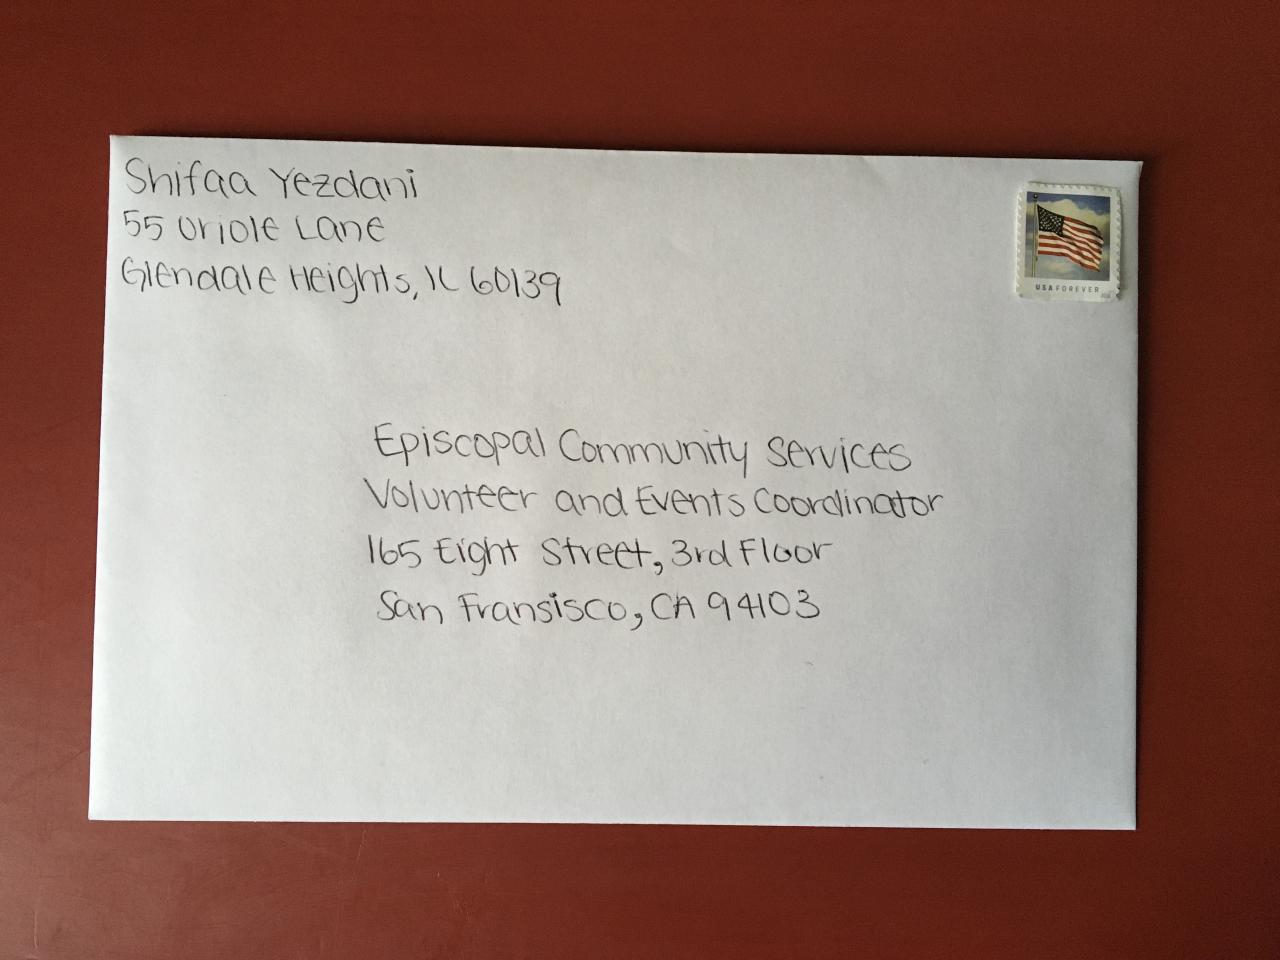 Shifaa Yezdani
55 Oriole Lane
Glendale Heights, IL 60139
USA FOREVER
Episcopal Community Services
Volunteer and Events Coordinator
165 Eight Street, 3rd Floor
San Fransisco, CA 94103